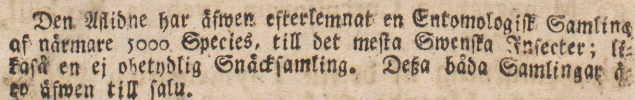 Den Aflidne har äfwen efterlemnat en Entomologisk Samling
af närmare 5000 Species, till det mesta Swenska Insecter; li-
kaså en ej obetydlig Snäcksamling. Deßa båda Samlingar ä-
ro äfwen till salu.